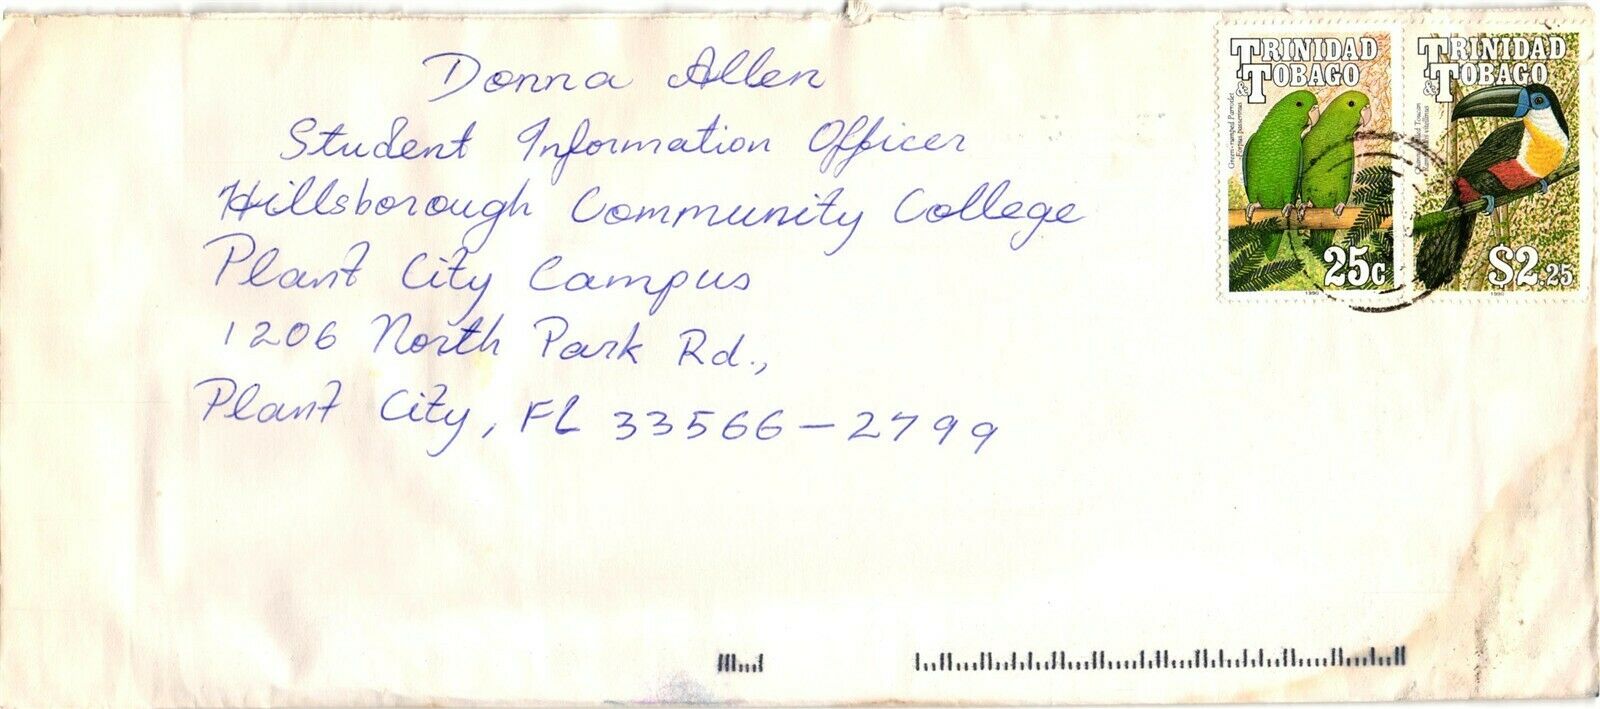 Donna Allen
Student Information Officer
Hillsborough Community College
Plant City Campus
1206 North Park Rd.,
Plant City, FL 33566-2799
TRINIDAD
& TOBAGO
Green-rumped Parrotlet
Forpus passerinus
25c
1990
TRINIDAD
& TOBAGO
Toucan
vitellinus
$2.25
1990